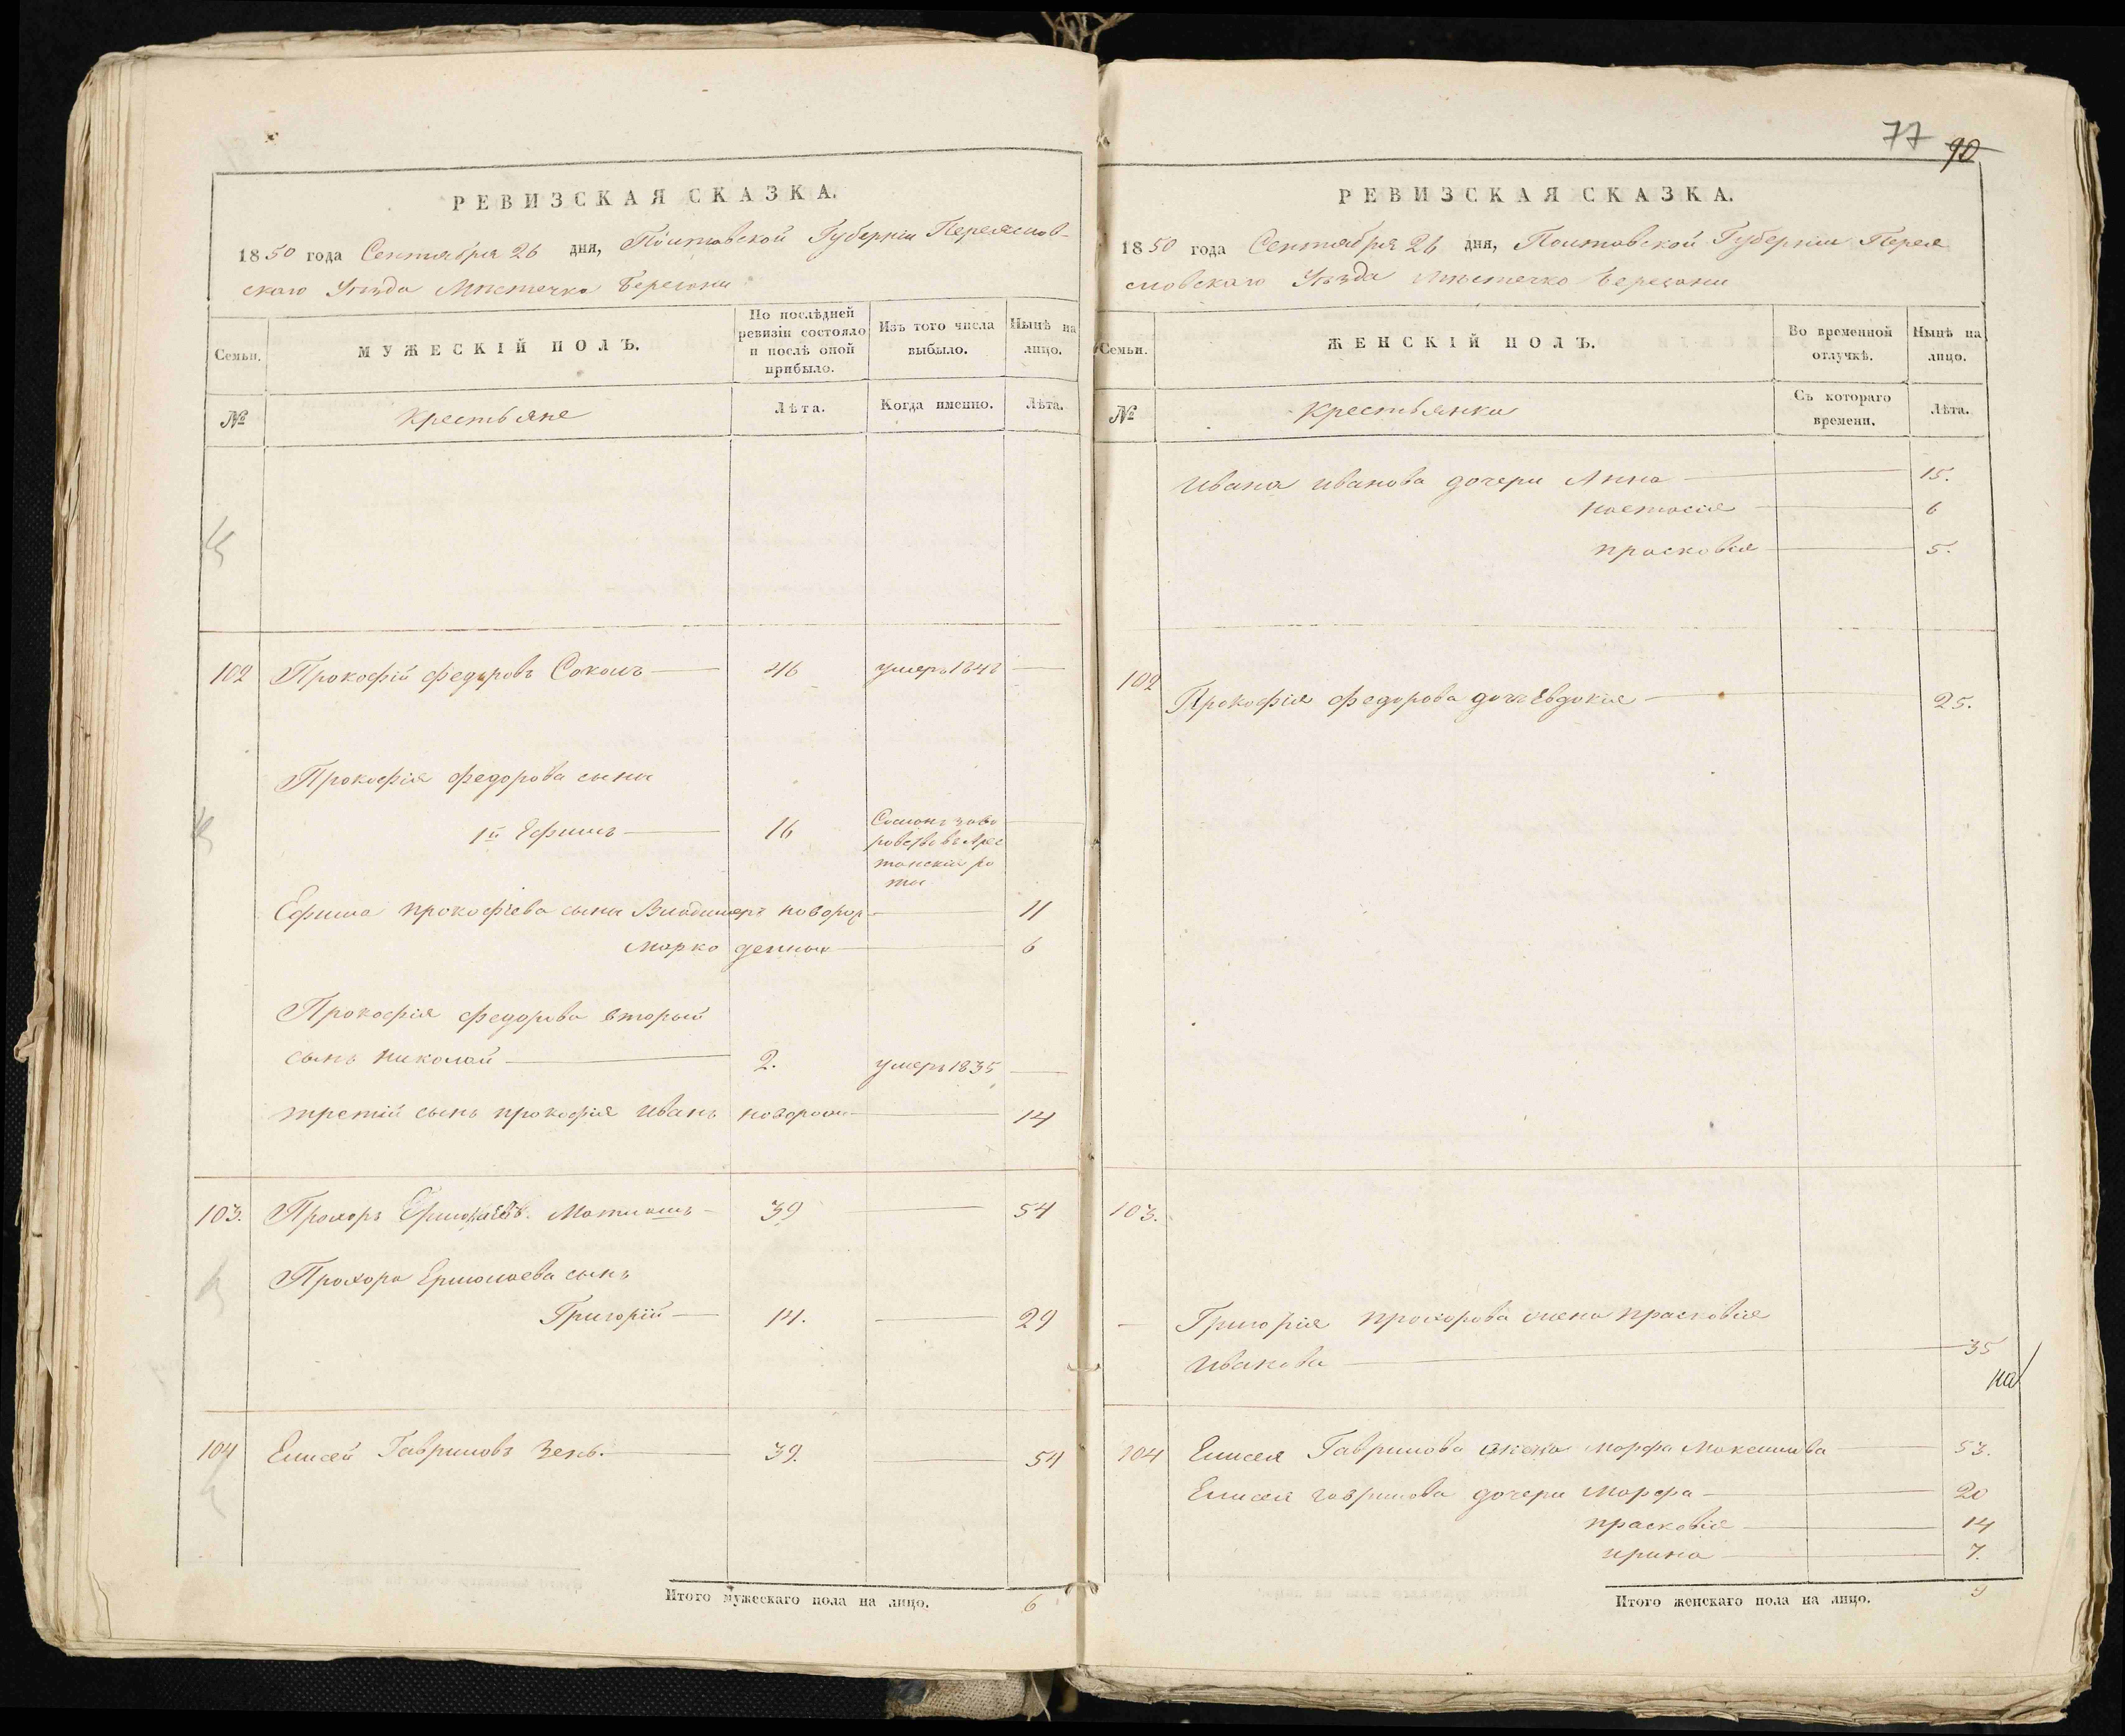 РЕВИЗСКАЯ СКАЗКА.
1850 года Сентября 26 дня, Полтавской Губерніи Переяслов-
скаго Уѣзда Мѣстечка Березани
Семьи.
МУЖЕСКІЙ ПОЛЪ.
По послѣдней
ревизіи состояло
и послѣ оной
прибыло.
Изъ того числа
выбыло.
Нынѣ на
лицо.
№
Крестьяне
Лѣта.
Когда именно.
Лѣта.
102 Прокофій Федоровъ Соколъ 46 умеръ 1848
Прокофія Федорова сыны
1й Ефимъ 16
Сосланъ за во
ровство въ Арес
танскія ро
ты
Ефима прокофіева сыны Владимеръ новорож 11
Марко денные 6
Прокофія Федорова второй
сынъ Николай 2. умеръ 1835
третій сынъ прокофія Иванъ новорож 14
103. Прохоръ Ермолаевъ. Матюшъ 39 54
Прохора Ермолаева сынъ
Григорій 14. 29
104 Елисей Гавриловъ Зень. 39. 54
Итого мужескаго пола на лицо. 6
77 90
РЕВИЗСКАЯ СКАЗКА.
1850 года Сентября 26 дня, Полтавской Губерніи Перея
словскаго Уѣзда Мѣстечко Березани
Семьи.
ЖЕНСКІЙ ПОЛЪ.
Во временной
отлучкѣ.
Нынѣ на
лицо.
№
Крестьянки
Съ котораго
времени.
Лѣта.
Ивана Иванова дочери Анна 15.
Настасія 6
Прасковія 5.
102 Прокофія Федорова дочь Евдокія 25.
103.
Григорія Прохорова жена Прасковія
Иванова 35
104 Елисея Гаврилова жена Марфа Максимова 53.
Елисея Гаврилова дочери Марфа 20
Прасковія 14
Ирина 7.
Итого женскаго пола на лицо. 9